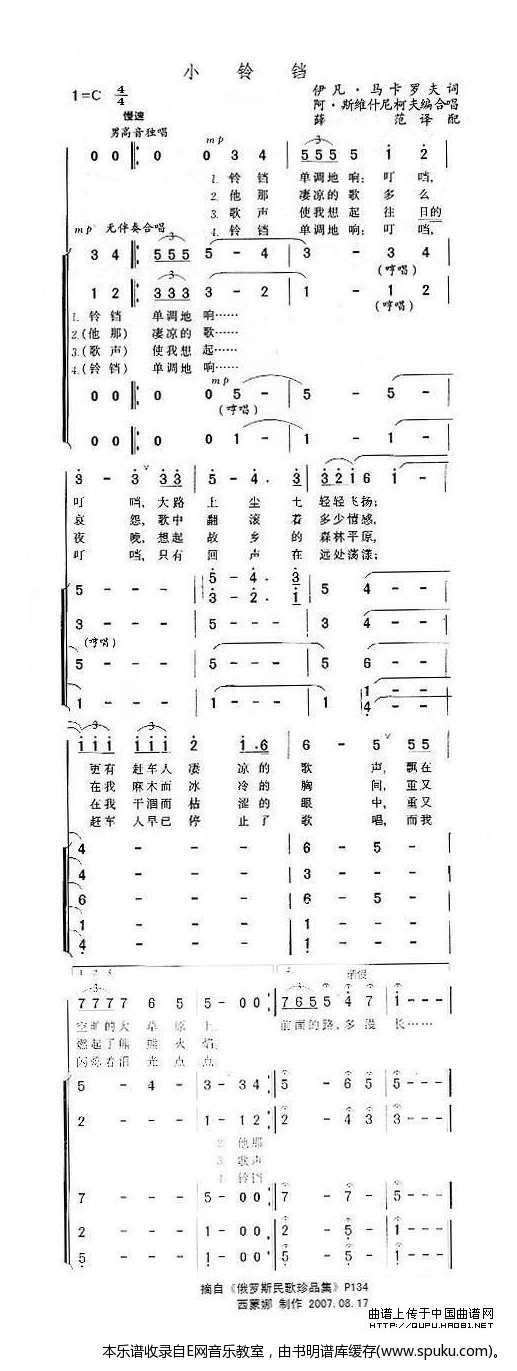 小铃铛
1=C 4/4
伊凡·马卡罗夫词
阿·斯维什尼柯夫编合唱
薛范译配
慢速
男高音独唱
mp
0 0 0 3 4 5 5 5 5 1 2
1.铃铛 单调地响;叮铛,
2.他那 凄凉的歌 多么
3.歌声 使我想起 往日的
4.铃铛 单调地响;叮铛,
mp 无伴奏合唱
3 4 5 5 5 5 - 4 3 - 3 4
(哼唱)
1 2 3 3 3 3 - 2 1 - 1 2
(哼唱)
1.铃铛 单调地响……
2.(他那)凄凉的歌……
3.(歌声)使我想起……
4.(铃铛)单调地响……
mp
0 0 0 0 5 - 5 - - 5 -
(哼唱)
0 0 0 0 1 - 1 - - 1 -
3 - 3 3 3 5 - 4 . 3 3 2 1 6 1 - -
叮 铛,大路 上 尘土 轻轻飞扬;
哀 怨,歌中 翻滚 着 多少情感,
夜 晚,想起 故乡 的 森林平原,
叮 铛,只有 回声 在 远处荡漾;
5 - 4 . 3
5 - - - 3 - 2 . 1 5 4 - -
3 - - - 3 4 - -
(哼唱)
5 - - - 5 - - - 5 6 - -
1 - -
1 - - - 1 - - - 4 - -
1 1 1 1 1 1 2 1 . 6 6 - 5 5 5
更有 赶车人 凄 凉的 歌 声,飘在
在我 麻木而 冰 冷的 胸 间,重又
在我 干涸而 枯 涩的 眼 中,重又
赶车 人早已 停 止了 歌 唱,而我
4 - - - 6 - 5 -
4 - - - 3 - - -
6 - - - 5 - - -
1 - - - 1 - - -
4 - - -
1 2 3
7 7 7 7 7 6 5 5 - 0 0 7 6 5 5 5 4 7 1 - - -
空旷的大草原上。 前面的路,多漫长……
燃起了熊熊火焰;
闪烁着泪光点点。
5 - 4 - 3 - 3 4 5 - 6 5 5 - - -
2 - - - 1 - 1 2 2 - 4 3 3 - - -
2.他那
3.歌声
4.铃铛
7 - - - 5 - 0 0 7 - 7 - 5 - - -
2 - - - 1 - 0 0 2 - 5 - 1 - - -
5 - - - 5 - 5 - 1 - - -
摘自《俄罗斯民歌珍品集》P134
西蒙娜 制作 2007.08.17
曲谱上传于中国曲谱网
WWW.QUPU123.COM
本乐谱收录自E网音乐教室,由书明谱库缓存(www.spuku.com)。